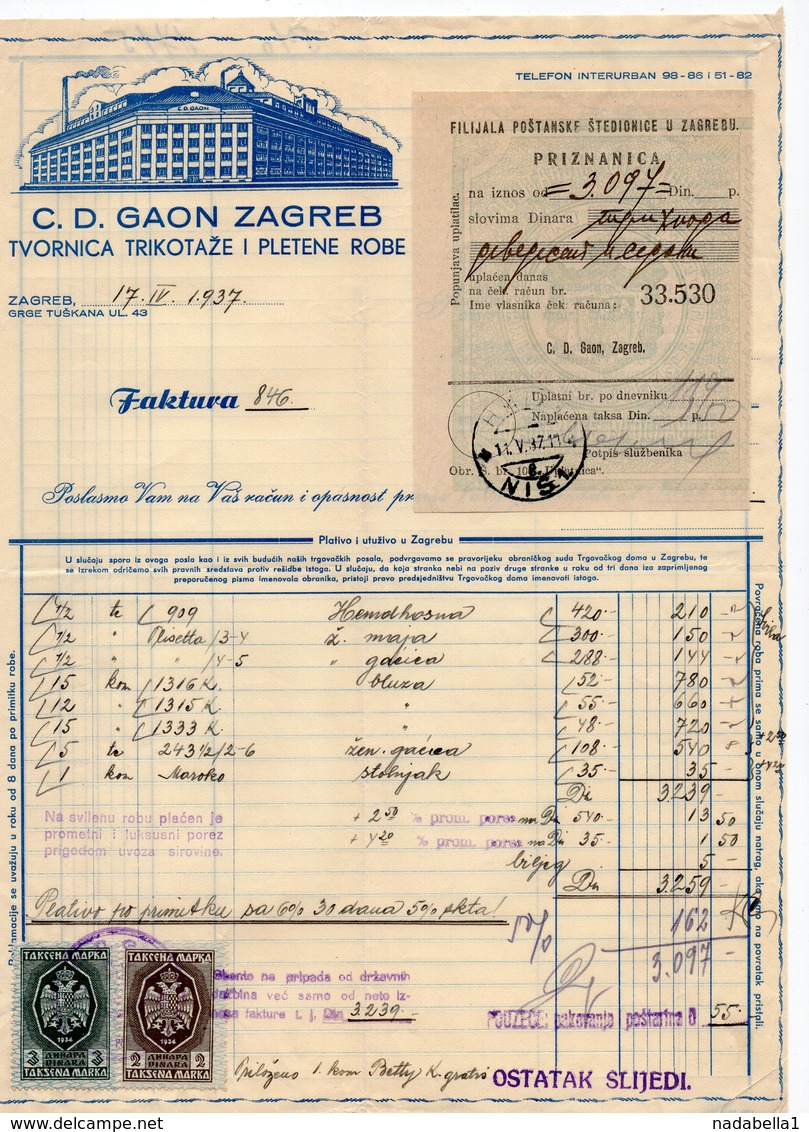 TELEFON INTERURBAN 98-86 i 51-82
C. D. GAON
C. D. GAON ZAGREB
TVORNICA TRIKOTAŽE I PLETENE ROBE
ZAGREB, 17. IV. 1937.
GRGE TUŠKANA UL. 43
Faktura 846.
FILIJALA POŠTANSKE ŠTEDIONICE U ZAGREBU.
PRIZNANICA
Popunjava uplatilac.
na iznos od =3.097= Din. p.
slovima Dinara три хиљаде
деведесет и седам
uplaćen danas
na ček. račun br.
Ime vlasnika ček. računa: 33.530
C. D. Gaon, Zagreb.
Uplatni br. po dnevniku
Naplaćena taksa Din. p.
Potpis službenika
Obr. Š. br. 108 „Uplatnica“.
NIŠ
Poslasmo Vam na Vaš račun i opasnost
Plativo i utuživo u Zagrebu
U slučaju spora iz ovoga posla kao i iz svih budućih naših trgovačkih posala, podvrgavamo se pravorijeku obraničkog suda Trgovačkog doma u Zagrebu, te
se izrekom odričemo svih pravnih sredstava protiv rešidbe istoga. U slučaju, da koja stranka nebi na poziv druge stranke u roku od tri dana iza zaprimljenog
preporučenog pisma imenovala obranika, pristoji pravo predsjedništvu Trgovačkog doma imenovati istoga.
1/2 tc 909 Hemdhosna 420.- 210 -
1/2 " Risetta /3-4 ž. maja 300.- 150 -
1/2 " " /4-5 " gaćica 288.- 144 -
15 kom 1316 K. bluza 52.- 780 -
12 " 1315 K. " 55.- 660 -
15 " 1333 K. " 48.- 720 -
5 tc 243 1/2/2-6 žen. gaćica 108.- 540
1 kom Maroko stolnjak 35.- 35.-
Di 3239.-
Na svilenu robu plaćen je
prometni i luksusni porez
prigodom uvoza sirovine.
+ 2 50 % prom. porez na Di 540.- 13 50
+ 4 20 % prom. porez na Di 35.- 1 50
biljeg 5 -
Din 3.259 -
Plativo po primitku sa 6% 30 dana 5% skta!
5% 162
3.097 -
Reklamacije se uvažuju u roku od 8 dana po primitku robe.
Povraćena roba prima se samo u onom slučaju natrag, ako smo na povratak pristali.
Skonto ne pripada od državnih
dažbina već samo od neto iz-
nosa fakture t. j. Din 3239.-
POUZEĆE: pakovanje poštarina D 55.-
Priloženo 1. kom Betty K. gratis
OSTATAK SLIJEDI.
ТАКСЕНА МАРКА
1934
3 ДИНАРА 3
DINARA
TAKSENA MARKA
ТАКСЕНА МАРКА
1934
2 ДИНАРА 2
DINARA
TAKSENA MARKA
nadabella1